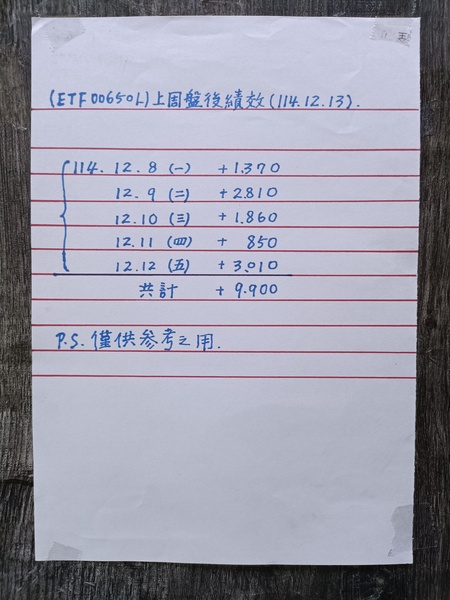 (ETF00650L)上周盤後績效(114.12.13).
114. 12. 8 (一) +1.370
12. 9 (二) +2.810
12.10 (三) +1.860
12.11 (四) + 850
12.12 (五) +3.010
共計 +9.900
P.S. 僅供參考之用.